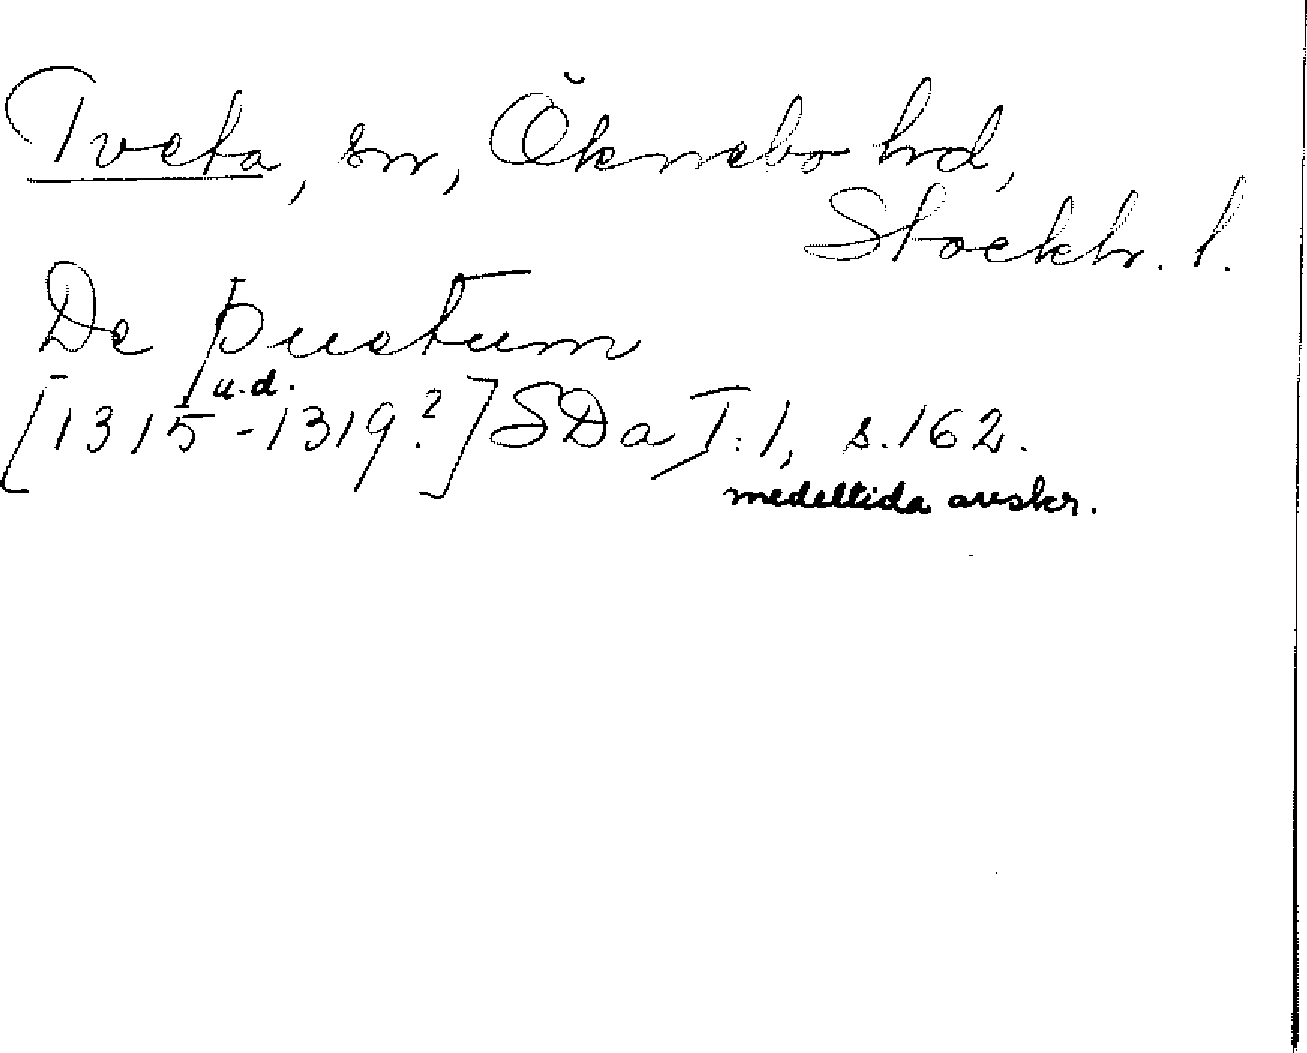 Tveta, sn, Öknebo hd,
Stockh. l.
De þuetum
u.d.
[1315-1319?] SDa I:1, s.162.
medeltida avskr.